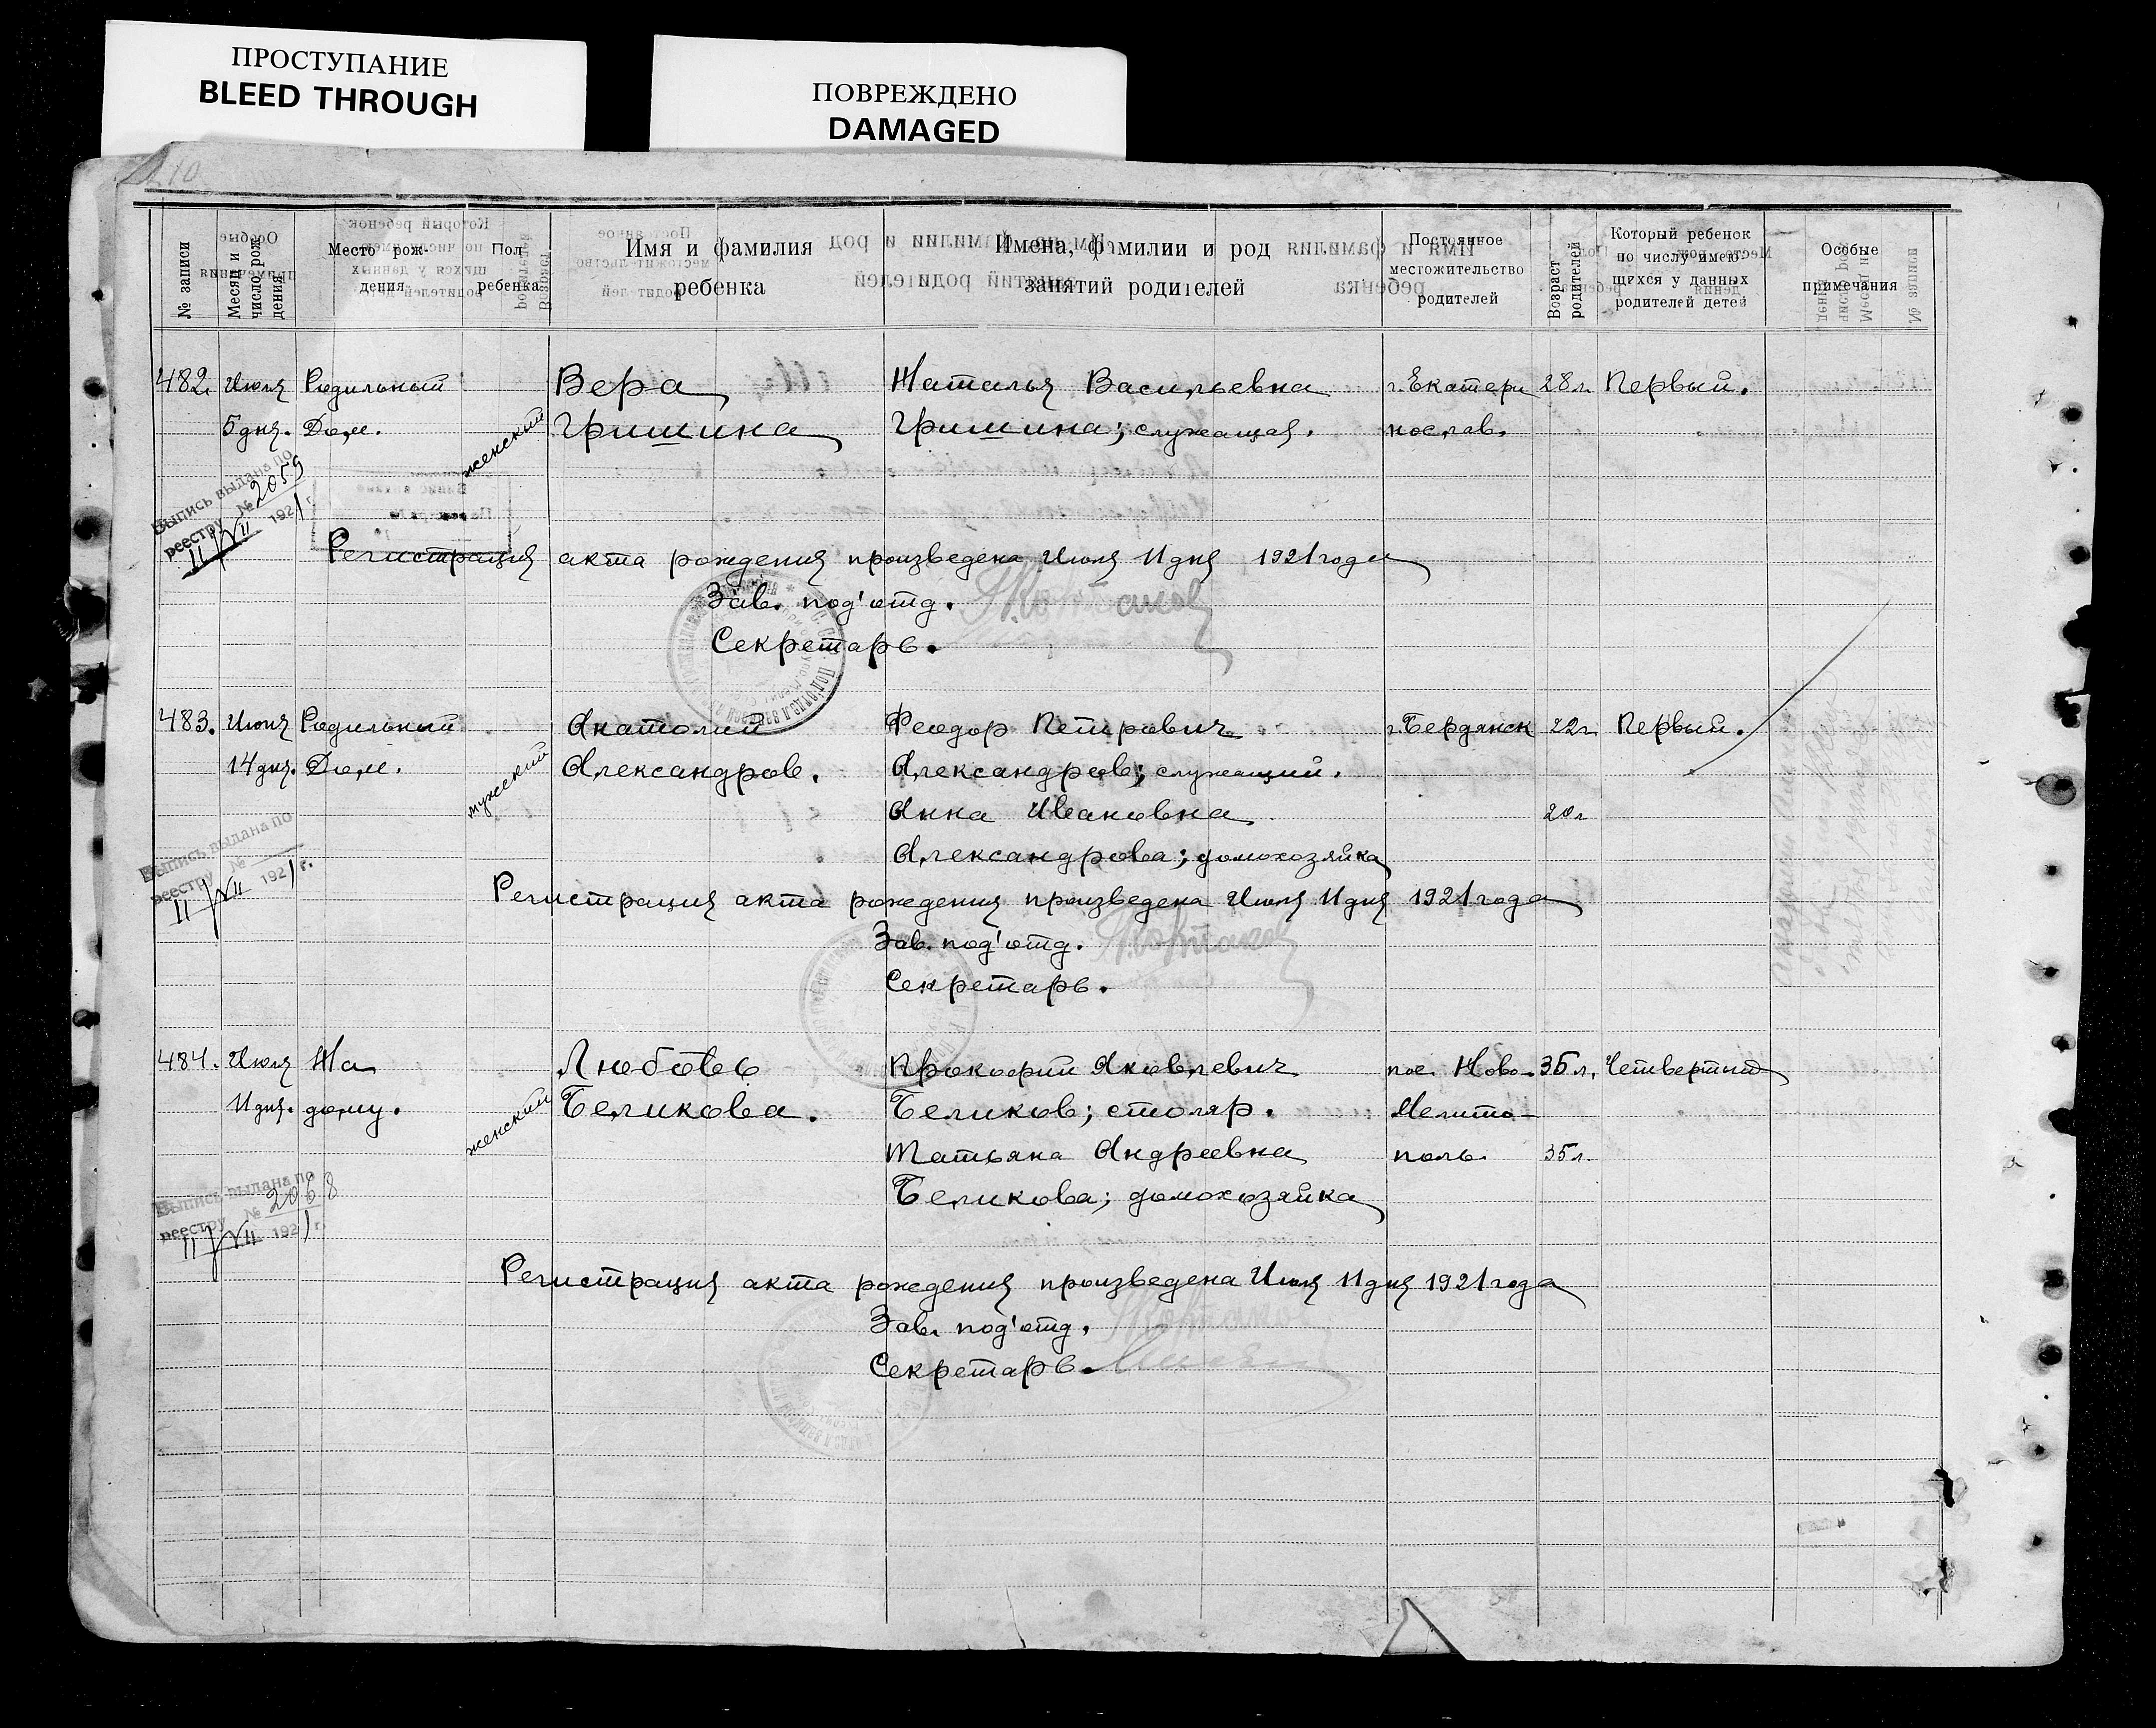 ПРОСТУПАНИЕ
BLEED THROUGH
ПОВРЕЖДЕНО
DAMAGED
210
№ записи
Месяц и число рождения
Место рож-
дения
Пол
ребенка
Имя и фамилия
ребенка
Имена, фамилии и род
занятий родителей
Постоянное
местожительство
родителей
Возраст
родителей
Который ребенок
по числу имею-
щихся у данных
родителей детей
Особые
примечания
482. Июля Родильный Вера Наталья Васильевна г. Екатери 28 л. Первый.
5 дня. Дом. женский Гришина Гришина; служащая. нослав.
Выпись выдана по
реестру № 2059
11/VII 1921 г.
Регистрация акта рождения произведена Июля 11 дня 1921 года
Зав. под'отд.
Секретарь.
483. Июня Родильный Анатолий Феодор Петрович г. Бердянск 22 г. Первый.
14 дня. Дом. мужеский Александров. Александров; служащий.
Анна Ивановна 20 л
Александрова; домохозяйка
Выпись выдана по
реестру №
11/VII 1921 г.
Регистрация акта рождения произведена Июля 11 дня 1921 года
Зав. под'отд.
Секретарь.
484. Июля На Любовь Прокофий Яковлевич пос. Ново- 35 л. Четвертый
11 дня. дому. женский Беликова. Беликов; столяр. Мелито-
Татьяна Андреевна поль 35 л.
Беликова; домохозяйка
Выпись выдана по
реестру № 2068
11/VII 1921 г.
Регистрация акта рождения произведена Июля 11 дня 1921 года
Зав. под'отд.
Секретарь.